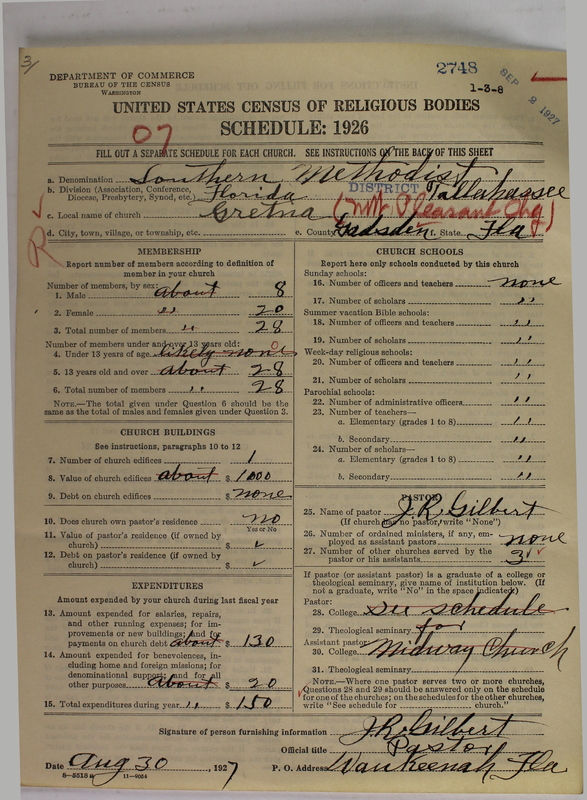 3/
DEPARTMENT OF COMMERCE
BUREAU OF THE CENSUS
WASHINGTON
2748
1-3-8
SEP 2 1927
UNITED STATES CENSUS OF RELIGIOUS BODIES
SCHEDULE: 1926
07
FILL OUT A SEPARATE SCHEDULE FOR EACH CHURCH. SEE INSTRUCTIONS ON THE BACK OF THIS SHEET
a. Denomination Southern Methodist
b. Division (Association, Conference, Diocese, Presbytery, Synod, etc.) Florida DISTRICT Tallahassee
c. Local name of church Gretna (Mt Pleasant Chg)
R
d. City, town, village, or township, etc. e. County Gadsden f. State Fla
MEMBERSHIP
Report number of members according to definition of
member in your church
Number of members, by sex:
1. Male about 8
2. Female " 20
3. Total number of members " 28
Number of members under and over 13 years old:
4. Under 13 years of age likely none 0
5. 13 years old and over about 28
6. Total number of members " 28
NOTE.—The total given under Question 6 should be the
same as the total of males and females given under Question 3.
CHURCH BUILDINGS
See instructions, paragraphs 10 to 12
7. Number of church edifices 1
8. Value of church edifices about $ 1000
9. Debt on church edifices $ none
10. Does church own pastor's residence no
Yes or No
11. Value of pastor's residence (if owned by
church) $ ✓
12. Debt on pastor's residence (if owned by
church) $ ✓
EXPENDITURES
Amount expended by your church during last fiscal year
13. Amount expended for salaries, repairs,
and other running expenses; for im-
provements or new buildings; and for
payments on church debt about $ 130
14. Amount expended for benevolences, in-
cluding home and foreign missions; for
denominational support; and for all
other purposes about $ 20
15. Total expenditures during year " $ 150
CHURCH SCHOOLS
Report here only schools conducted by this church
Sunday schools:
16. Number of officers and teachers none
17. Number of scholars "
Summer vacation Bible schools:
18. Number of officers and teachers "
19. Number of scholars "
Week-day religious schools:
20. Number of officers and teachers "
21. Number of scholars "
Parochial schools:
22. Number of administrative officers "
23. Number of teachers—
a. Elementary (grades 1 to 8) "
b. Secondary "
24. Number of scholars—
a. Elementary (grades 1 to 8) "
b. Secondary "
PASTOR
25. Name of pastor J.R. Gilbert
(If church has no pastor, write "None")
26. Number of ordained ministers, if any, em-
ployed as assistant pastors none
27. Number of other churches served by the
pastor or his assistants 3 ✓
If pastor (or assistant pastor) is a graduate of a college or
theological seminary, give name of institution below. (If
not a graduate, write "No" in the space indicated)
Pastor:
28. College see schedule
29. Theological seminary for
Assistant pastor:
30. College Midway Church
31. Theological seminary
NOTE.—Where one pastor serves two or more churches,
Questions 28 and 29 should be answered only on the schedule
for one of the churches; on the schedules for the other churches,
write "See schedule for church."
Signature of person furnishing information J.R. Gilbert
Official title Pastor
Date Aug 30, 1927 P. O. Address Waukeenah Fla
8—5518 a 11—9054